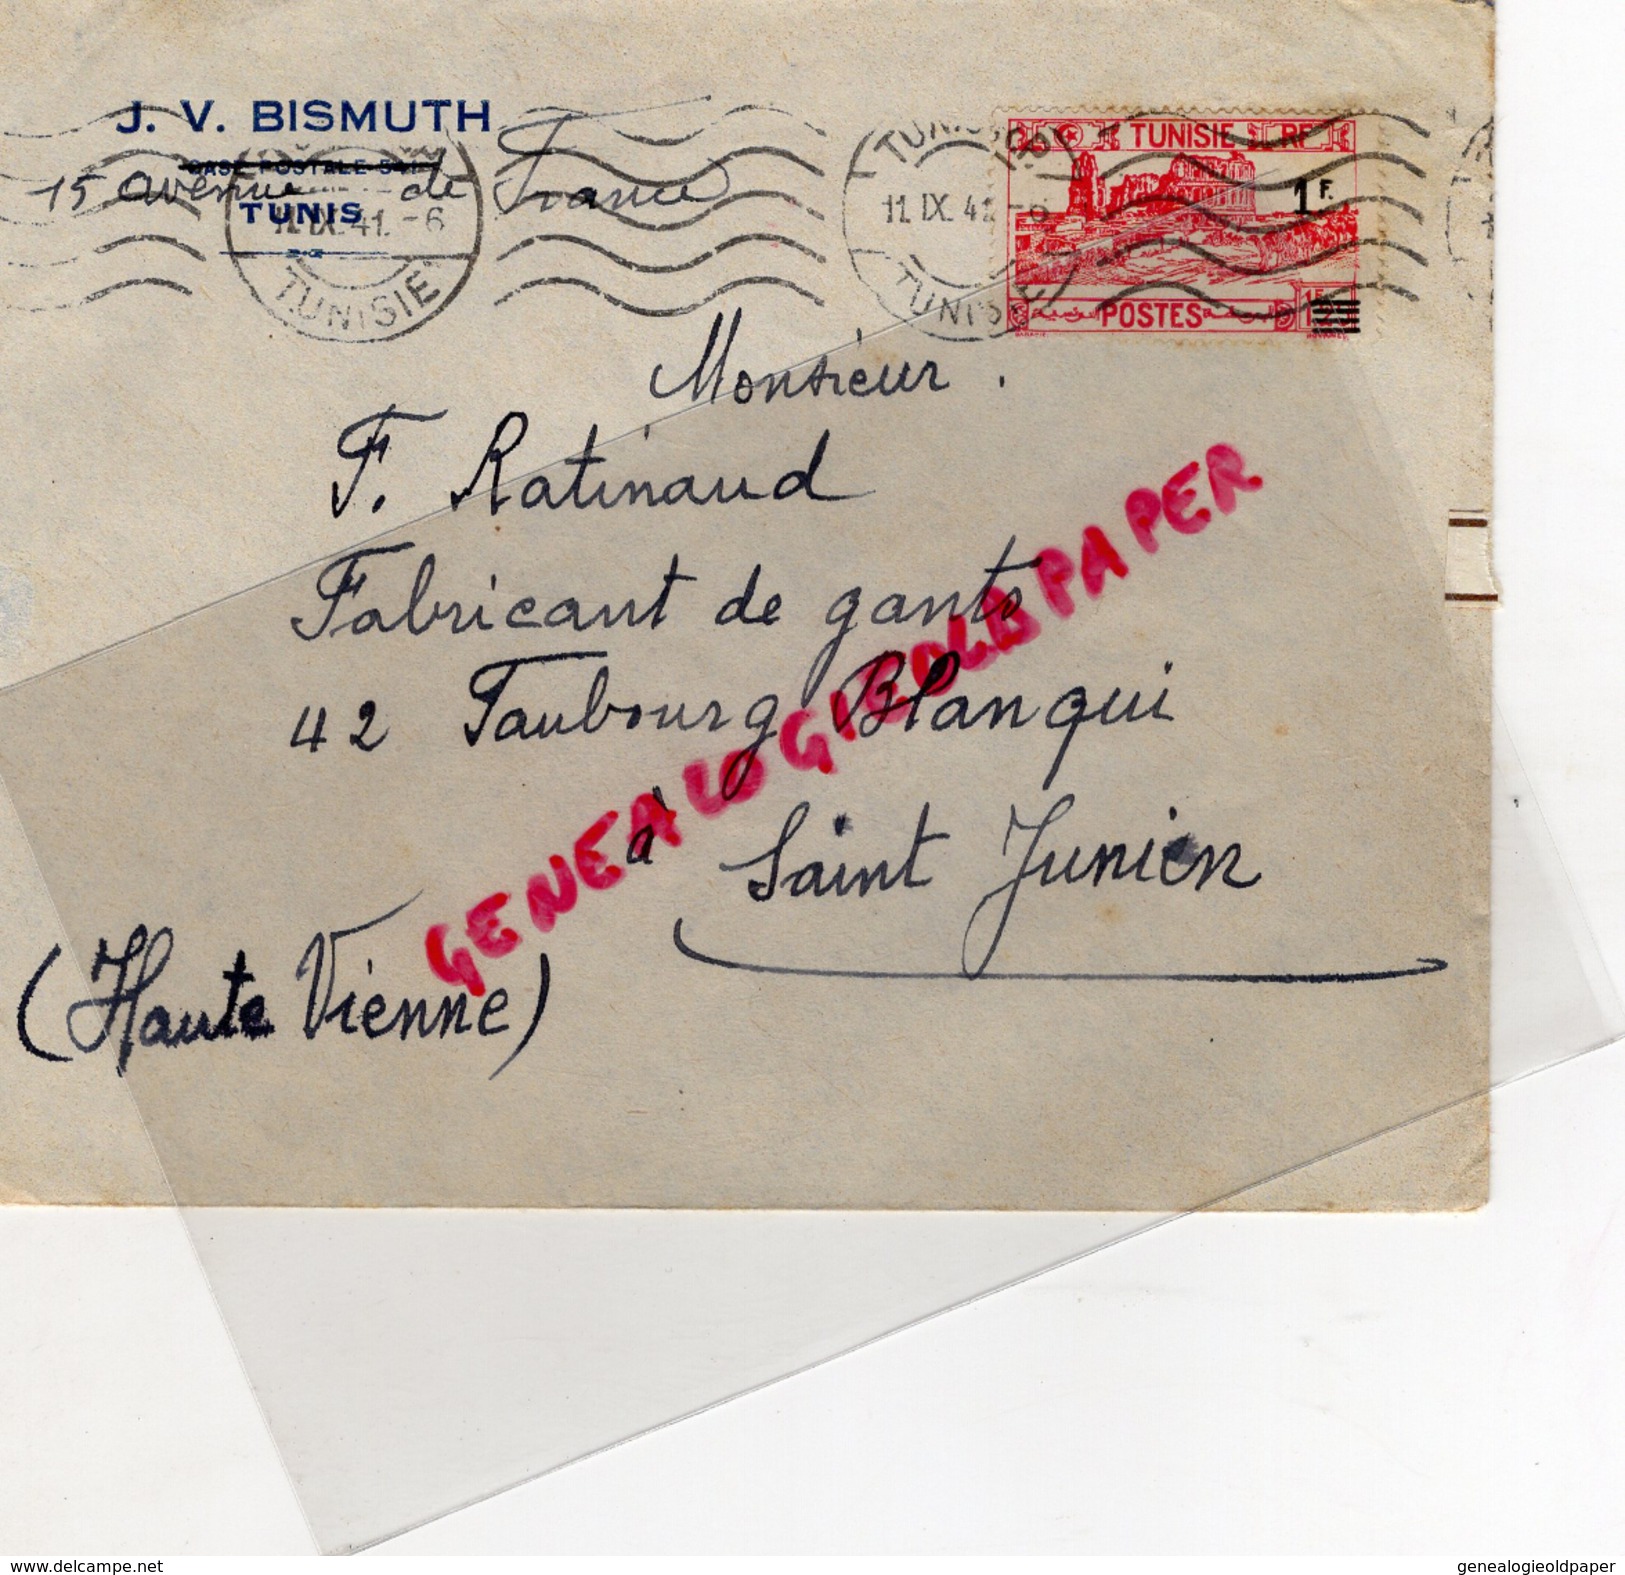 J. V. BISMUTH
CASE POSTALE
15 avenue de France
TUNIS
11. IX. 41. -6
TUNISIE
11. IX. 41 -6
TUNISIE
TUNISIE RF
1 F.
POSTES
Monsieur
F. Ratinaud
Fabricant de gants
42 Faubourg Blanqui
à Saint Junien
(Haute Vienne)
GENEALOGIEOLDPAPER
delcampe.net
genealogieoldpaper